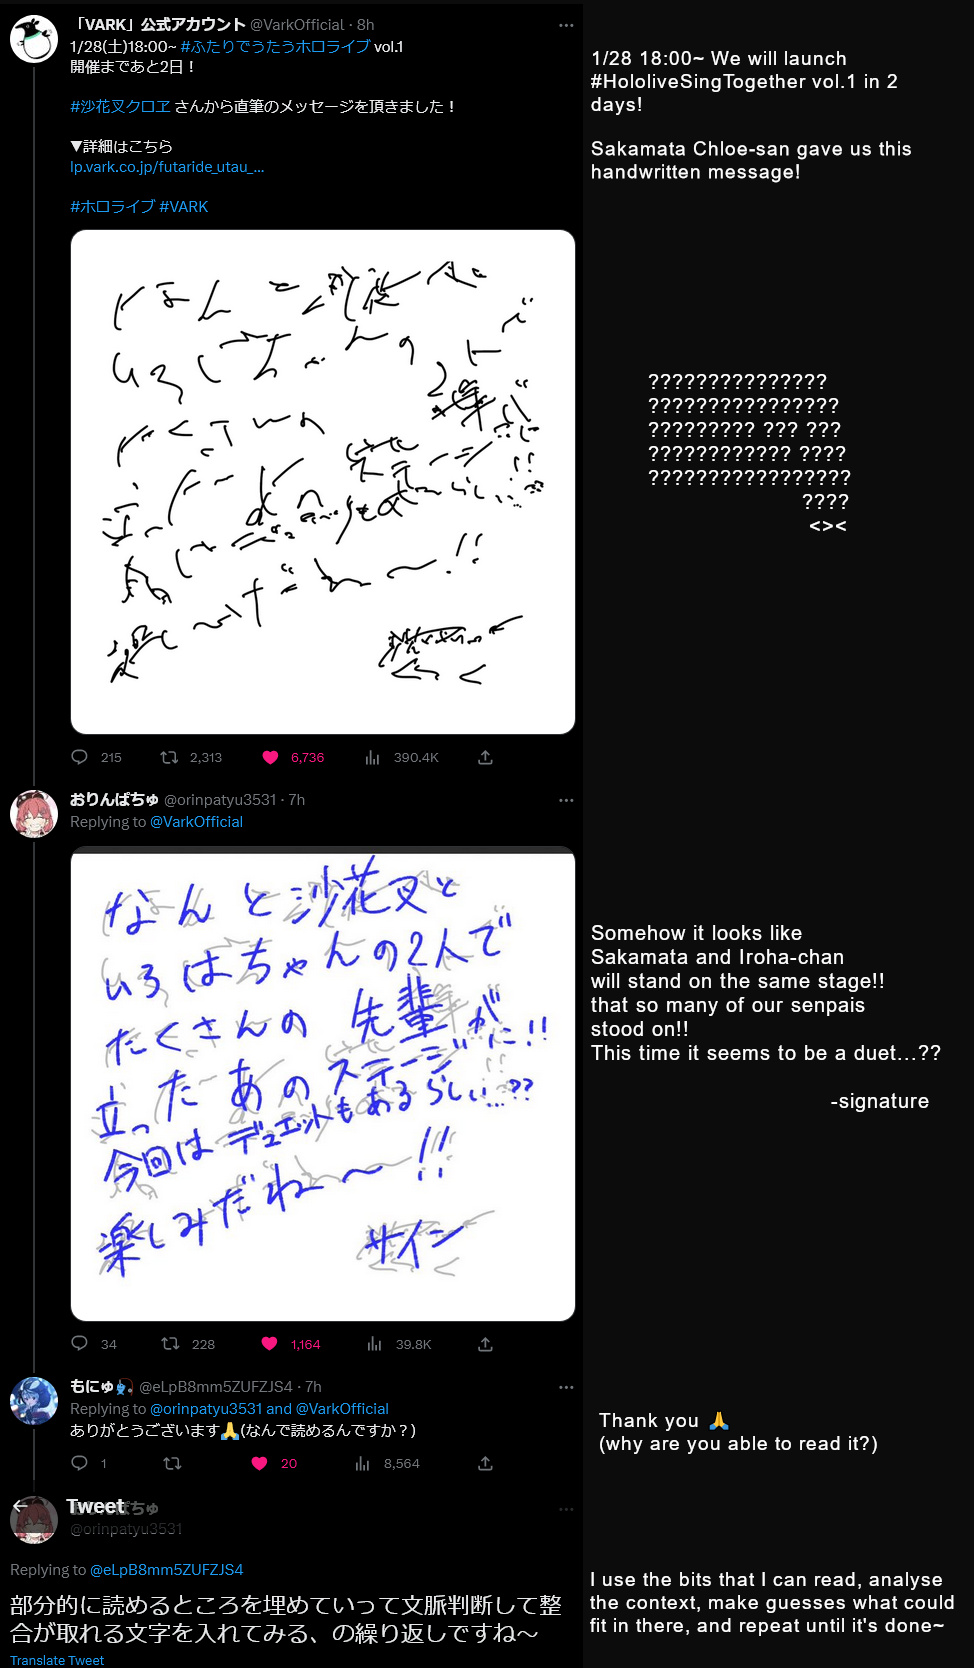 「VARK」公式アカウント @VarkOfficial · 8h
1/28(土)18:00~ #ふたりでうたうホロライブ vol.1
開催まであと2日！
#沙花叉クロヱ さんから直筆のメッセージを頂きました！
▼詳細はこちら
lp.vark.co.jp/futaride_utau_...
#ホロライブ #VARK
1/28 18:00~ We will launch
#HololiveSingTogether vol.1 in 2
days!
Sakamata Chloe-san gave us this
handwritten message!
???????????????
????????????????
????????? ??? ???
???????????? ????
?????????????????
????
<><
215 2,313 6,736 390.4K
おりんぱちゅ @orinpatyu3531 · 7h
Replying to @VarkOfficial
なんと沙花叉と
いろはちゃんの2人で
たくさんの先輩が
立ったあのステージに!!
今回はデュエットもあるらしい...??
楽しみだね〜!!
サイン
Somehow it looks like
Sakamata and Iroha-chan
will stand on the same stage!!
that so many of our senpais
stood on!!
This time it seems to be a duet...??
-signature
34 228 1,164 39.8K
もにゅ @eLpB8mm5ZUFZJS4 · 7h
Replying to @orinpatyu3531 and @VarkOfficial
ありがとうございます🙏(なんで読めるんですか？)
1 20 8,564
Thank you 🙏
(why are you able to read it?)
Tweet
おりんぱちゅ
@orinpatyu3531
Replying to @eLpB8mm5ZUFZJS4
部分的に読めるところを埋めていって文脈判断して整
合が取れる文字を入れてみる、の繰り返しですね〜
Translate Tweet
I use the bits that I can read, analyse
the context, make guesses what could
fit in there, and repeat until it's done~